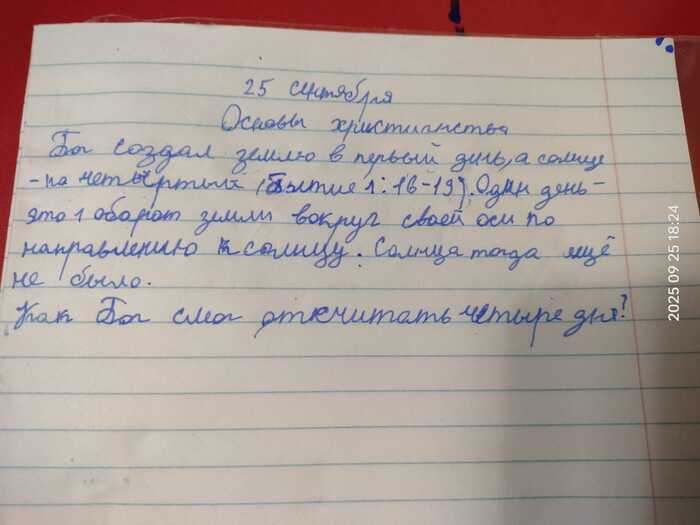 25 сентября
Основы христианства
Бог создал землю в первый день, а солнце
- на четвёртый (Бытие 1:16-19). Один день -
это 1 оборот земли вокруг своей оси по
направлению к солнцу. Солнца тогда ещё
не было.
Как Бог смог отсчитать четыре дня?
2025 09 25 18:24